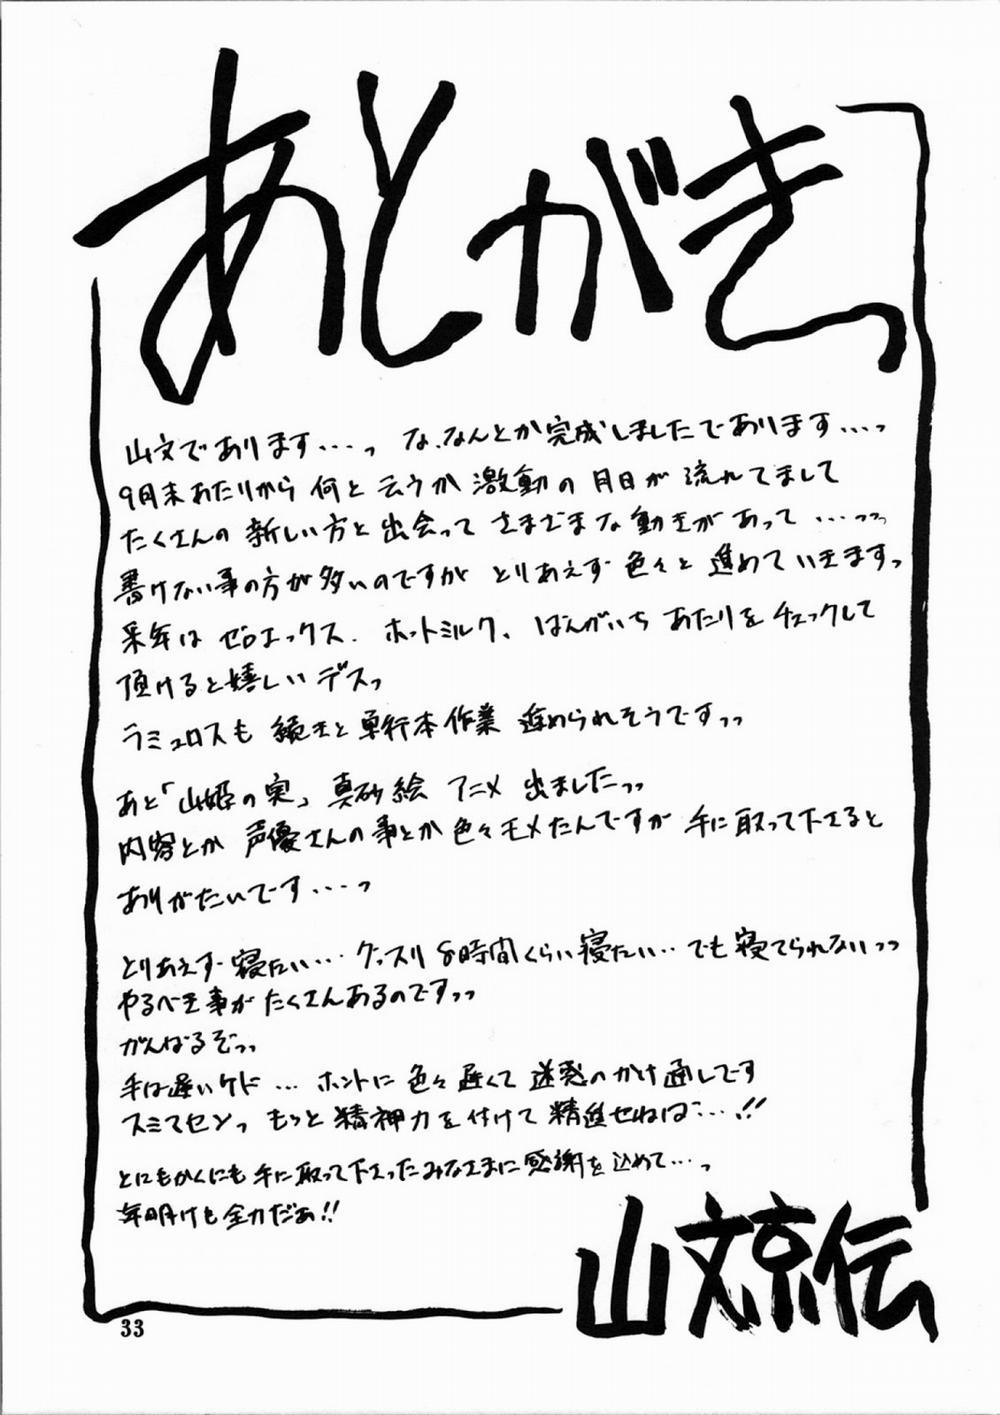 あとがきっ
山文であります…っ な、なんとか完成しましたであります…っ
9月末あたりから 何と云うか 激動の 月日が 流れてまして
たくさんの 新しい方と 出会って さまざまな 動きが あって …っっ
書けない事の方が多いのですが とりあえず 色々と 進めていきますっ
来年は ゼロエックス、ホットミルク、ばんがいち あたりを チェックして
頂けると嬉しい デスっ
ラミュロスも 続きと 単行本作業 進められそうですっっ
あと「山姫の実」真砂絵 アニメ 出ましたっっ
内容とか 声優さんの事とか 色々モメたんですが 手に取って下さると
ありがたいです…っ
とりあえず 寝たい… グッスリ 8時間くらい 寝たい… でも 寝てられないっっ
やるべき事が たくさんあるのですっっ
がんばるぞっっ
手は遅いケド … ホントに 色々 遅くて 迷惑のかけ通しです
スミマセンっ もっと 精神力を 付けて 精進せねば…!!
とにもかくにも 手に取って下さったみなさまに 感謝を 込めて…っ
年明けも 全力だぁ!!
山文京伝
33